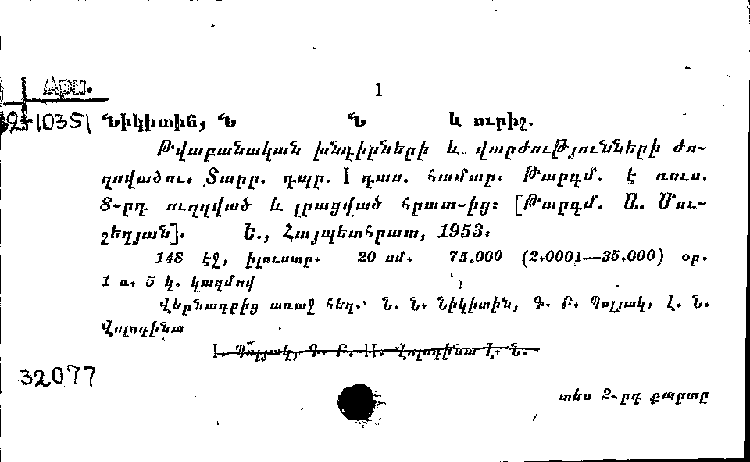 Արտ.
1
1035 Նիկիտին, Ն Ն և ուրիշ.
Թվաբանական խնդիրների և վարժությունների ժո-
ղովածու. Տարր. դպր. I դաս. համար. Թարգմ. է ռուս.
8-րդ ուղղված և լրացված հրատ-ից: [Թարգմ. Ա. Մու-
շեղյան]. Ե., Հայպետհրատ, 1953.
148 էջ, իլուստր. 20 սմ. 75.000 (2.0001—35.000) օր.
1 ռ. 5 կ. կազմով
Վերնագրից առաջ հեղ.՝ Ն. Ն. Նիկիտին, Գ. Բ. Պոլյակ, Լ. Ն.
Վոլոդինա
I. Պոլյակ, Գ. Բ. II. Վոլոդինա Լ. Ն.
32077
տես 2-րդ քարտը